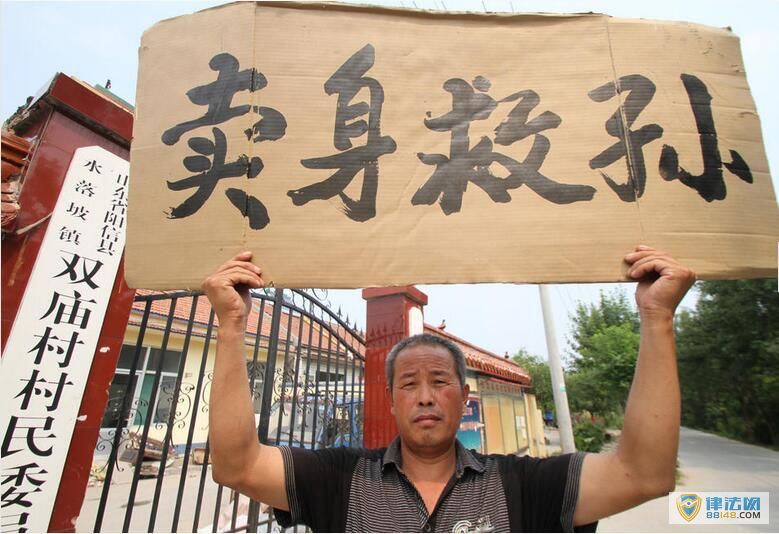 卖身救孙
山东省阳信县
水落坡镇
双庙村村民委员
律法网
88148.COM